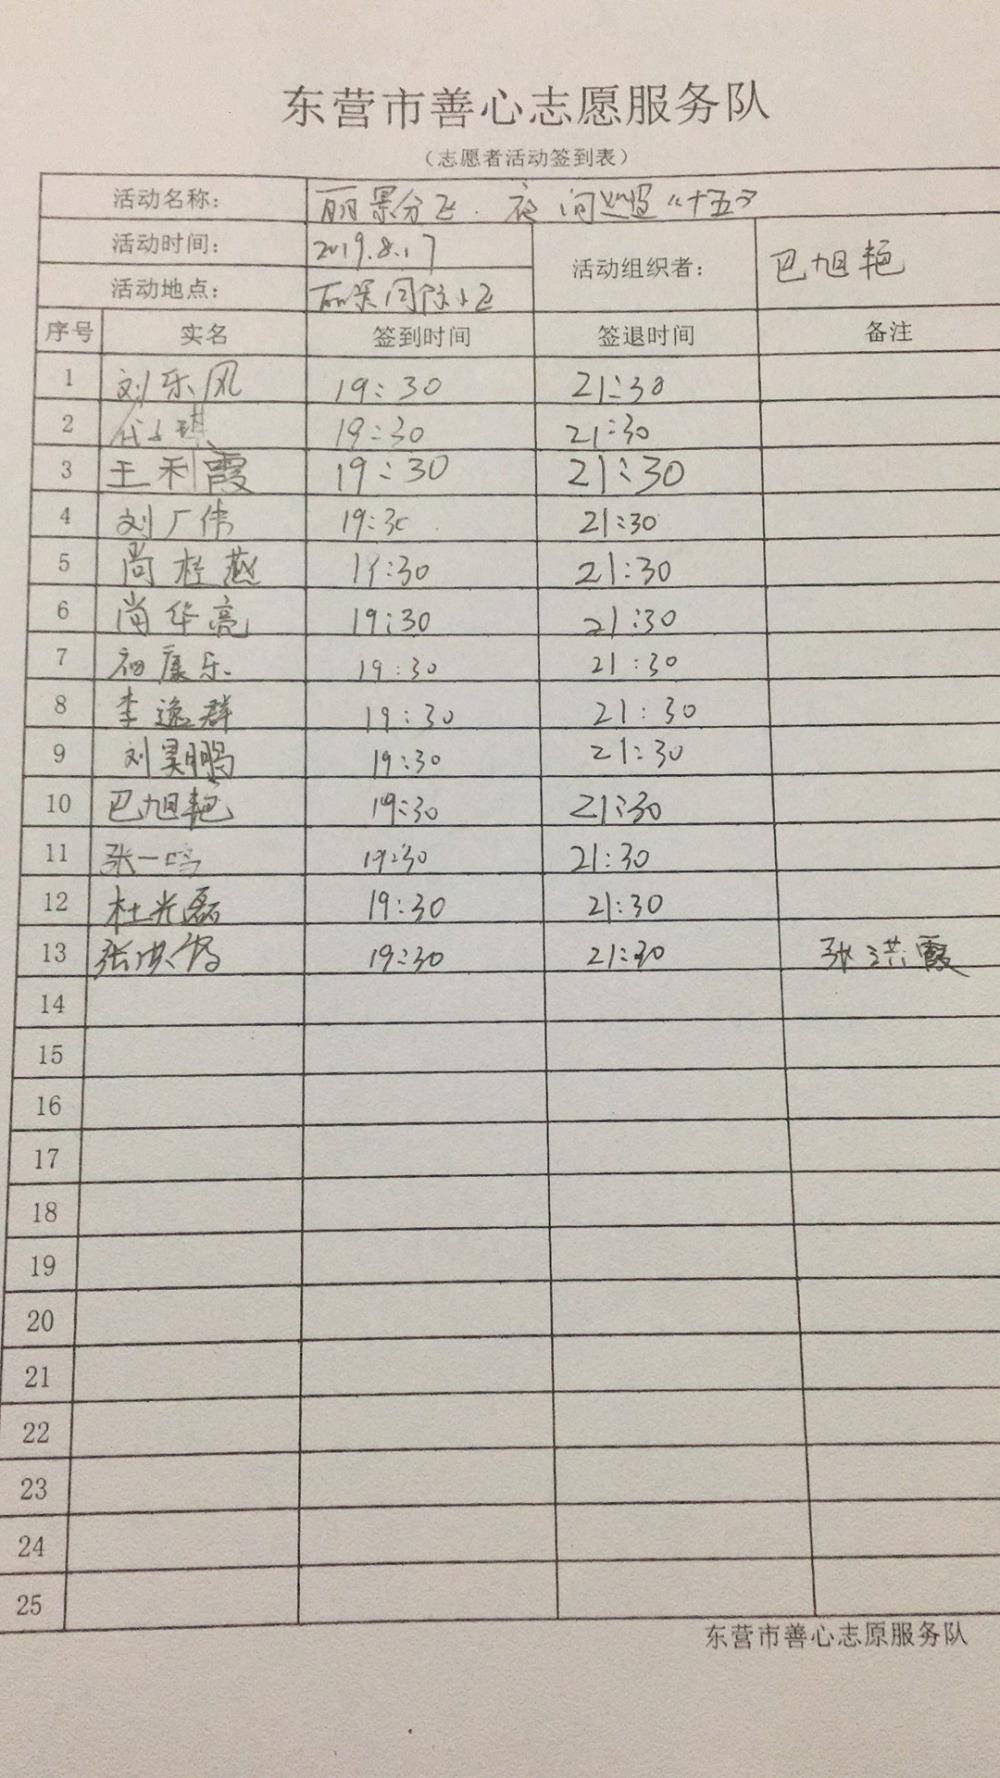 东营市善心志愿服务队
（志愿者活动签到表）
活动名称： 丽景分飞．夜间巡逻《十五》
活动时间： 2019.8.17 活动组织者： 巴旭艳
活动地点： 丽景国际小区
序号 实名 签到时间 签退时间 备注
1 刘乐风 19:30 21:30
2 19:30 21:30
3 王利霞 19:30 21:30
4 刘广伟 19:30 21:30
5 尚桂燕 19:30 21:30
6 尚华亮 19:30 21:30
7 康乐 19:30 21:30
8 李逸群 19:30 21:30
9 刘昊鹏 19:30 21:30
10 巴旭艳 19:30 21:30
11 张一鸣 19:30 21:30
12 杜光磊 19:30 21:30
13 张洪霞 19:30 21:30 张洪霞
14
15
16
17
18
19
20
21
22
23
24
25
东营市善心志原服务队